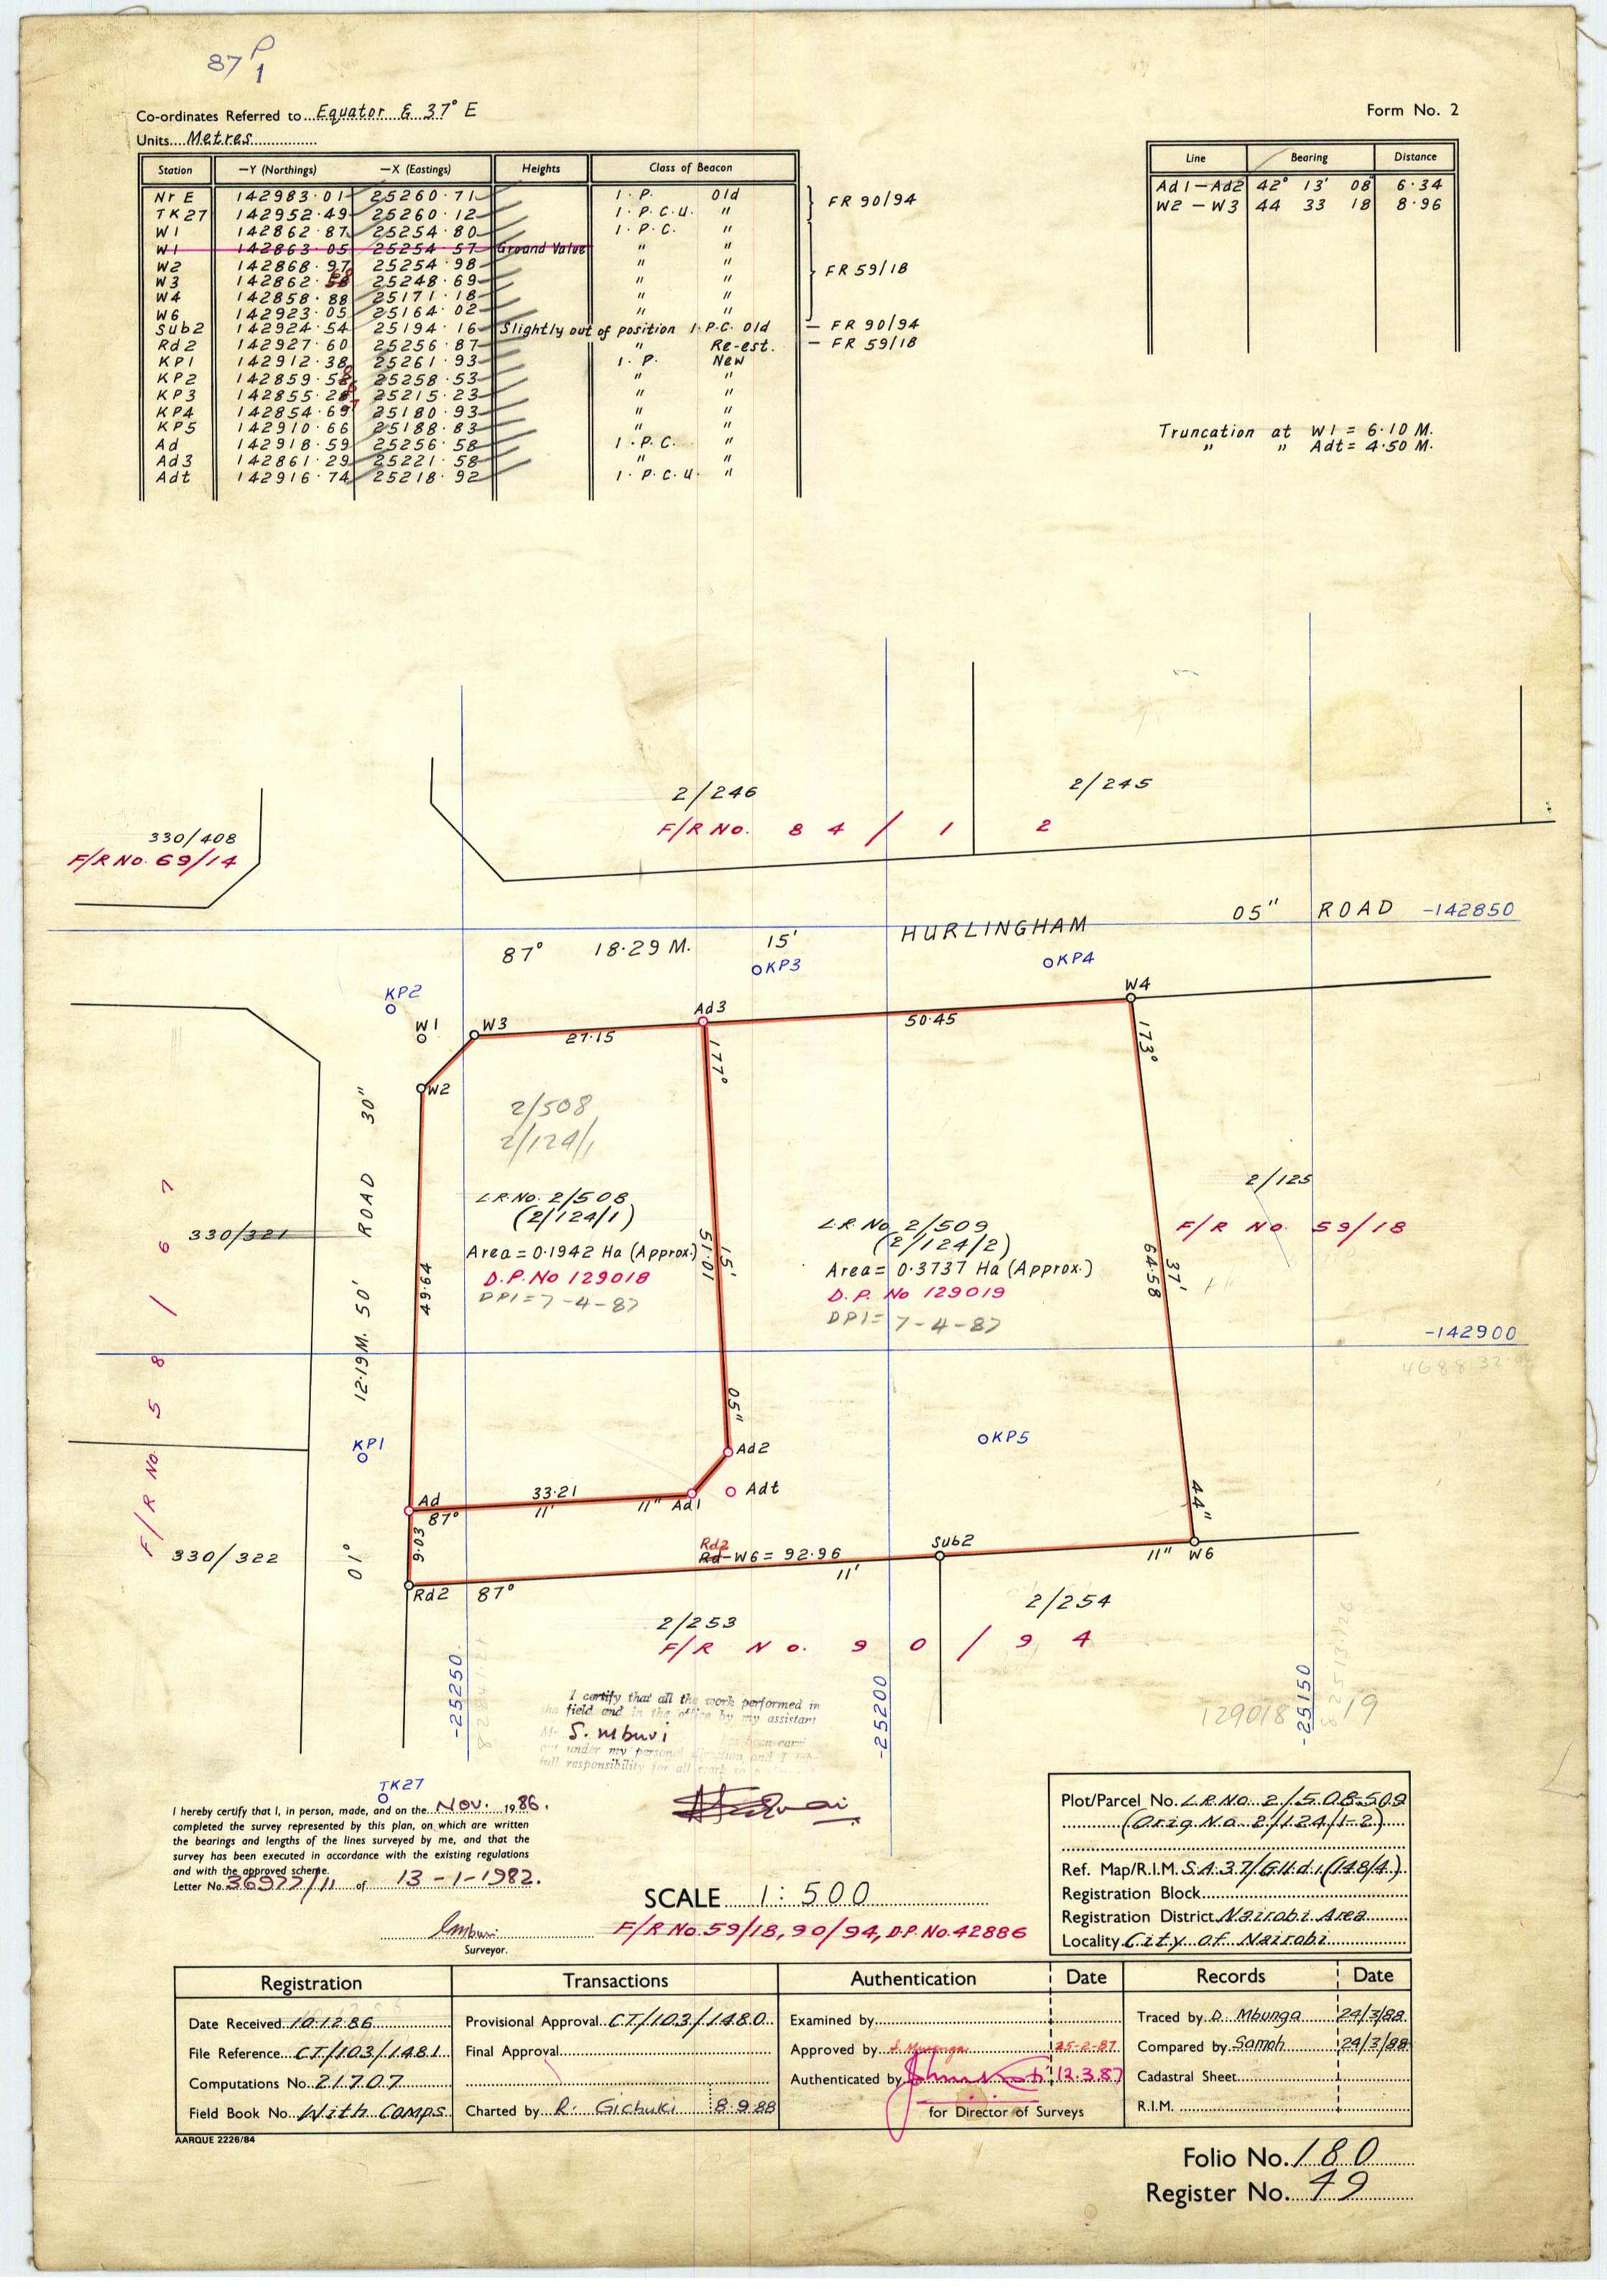 87 P/1
Co-ordinates Referred to Equator & 37° E
Units Metres
Form No. 2
Station —Y (Northings) —X (Eastings) Heights Class of Beacon
Nr E 142983·01 25260·71 I.P. Old
TK27 142952·49 25260·12 I.P.C.U. "
FR 90/94
W1 142862·87 25254·80 I.P.C. "
W1 142863·05 25254·57 Ground Value " "
W2 142868·97 25254·98 " "
W3 142862· 25248·69 " "
W4 142858·88 25171·18 " "
W6 142923·05 25164·02 " "
FR 59/18
Sub2 142924·54 25194·16 Slightly out of position I.P.C. Old — FR 90/94
Rd2 142927·60 25256·87 " Re-est. — FR 59/18
KP1 142912·38 25261·93 I.P. New
KP2 142859· 25258·53 " "
KP3 142855· 25215·23 " "
KP4 142854·69 25180·93 " "
KP5 142910·66 25188·83 " "
Ad 142918·59 25256·58 I.P.C. "
Ad3 142861·29 25221·58 " "
Adt 142916·74 25218·92 I.P.C.U. "
Line Bearing Distance
Ad1—Ad2 42° 13' 08" 6·34
W2 — W3 44 33 18 8·96
Truncation at W1 = 6·10 M.
" " Adt = 4·50 M.
2/246
2/245
F/R No. 84/12
330/408
F/R No. 69/14
HURLINGHAM ROAD
87° 15' 05"
18·29 M.
-142850
KP3
KP4
KP2
W1
W3
Ad3
W4
27·15
50·45
W2
177° 15' 05"
51·01
173° 37' 44"
64·58
2/508
2/124/1
L.R. No. 2/508
(2/124/1)
Area = 0·1942 Ha (Approx.)
D.P. No 129018
DP1 = 7-4-87
L.R. No. 2/509
(2/124/2)
Area = 0·3737 Ha (Approx.)
D.P. No 129019
DP1 = 7-4-87
2/125
F/R No. 59/18
330/321
F/R No. 58/67
ROAD
01° 50' 30"
12·19 M.
49·64
-142900
KP1
KP5
Ad2
Adt
Ad1
Ad
33·21
87° 11' 11"
9·03
Rd2
Rd-W6 = 92·96
Sub2
W6
Rd2 87° 11' 11"
330/322
2/253
2/254
F/R No. 90/94
-25250
-25200
-25150
129018 19
I certify that all the work performed in
the field and in the office by my assistant
Mr S. Mburi has been carried
out under my personal direction, and I
full responsibility for all work
TK27
I hereby certify that I, in person, made, and on the Nov. 1986.
completed the survey represented by this plan, on which are written
the bearings and lengths of the lines surveyed by me, and that the
survey has been executed in accordance with the existing regulations
and with the approved scheme.
Letter No. 36977/11 of 13-1-1982.
Surveyor.
SCALE 1:500
F/R No. 59/18, 90/94, D.P. No. 42886
Plot/Parcel No. L.R. No. 2/508-509
(Orig. No. 2/124/1-2)
Ref. Map/R.I.M. S.A.37/G.II.d.1.(148/4)
Registration Block
Registration District Nairobi Area
Locality City of Nairobi
Registration
Date Received 10.12.86
File Reference CT/103/1481
Computations No. 21707
Field Book No. With Comps
Transactions
Provisional Approval CT/103/1480
Final Approval
Charted by R. Gichuki 8.9.88
Authentication Date
Examined by
Approved by 25-2-87
Authenticated by 12.3.87
for Director of Surveys
Records Date
Traced by D. Mbunga 24/3/88
Compared by Samoh 24/3/88
Cadastral Sheet
R.I.M.
AARQUE 2226/84
Folio No. 180
Register No. 49